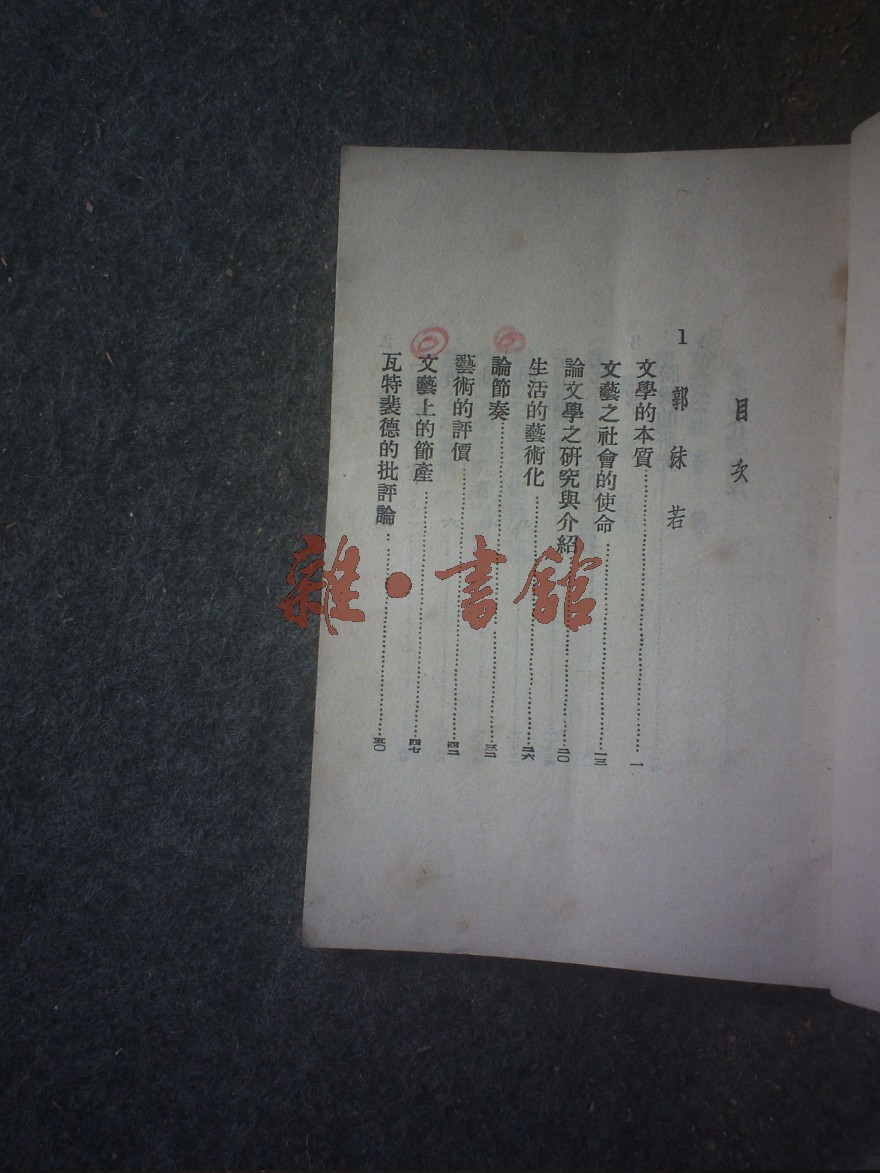 目次
1 郭沫若
文學的本質……一
文藝之社會的使命……一三
論文學之研究與介紹……二〇
生活的藝術化……二六
論節奏……三二
藝術的評價……四二
文藝上的節產……四七
瓦特裴德的批評論……五〇
雜·書館